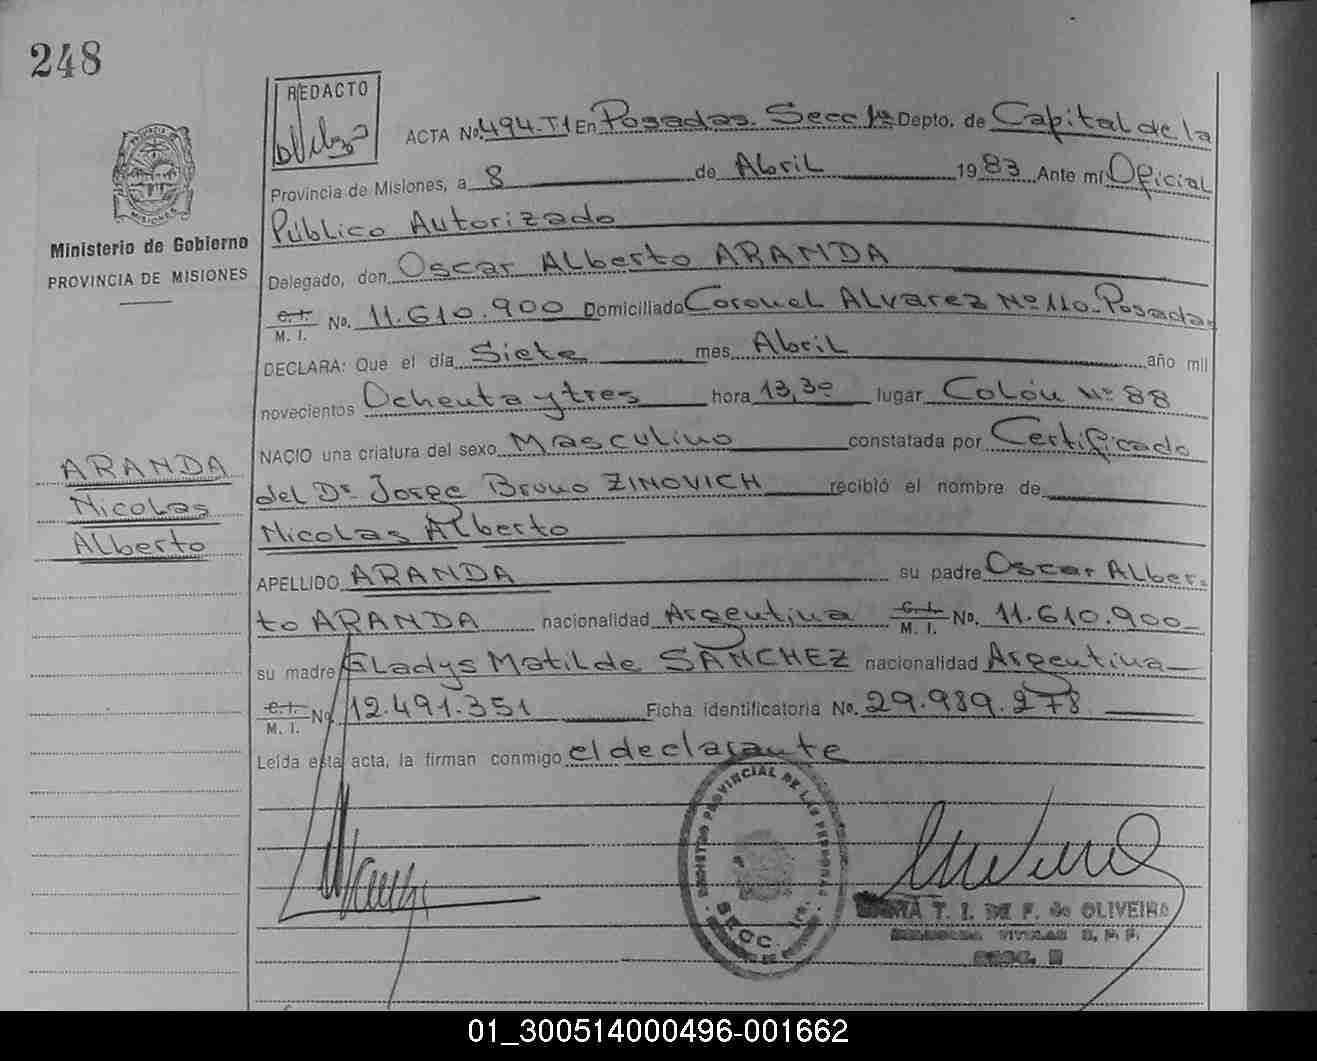 248
REDACTO
ACTA No. 494-T1 En Posadas. Secc 1ª Depto. de Capital de la
Provincia de Misiones, a 8 de Abril 1983 Ante mi Oficial
Público Autorizado
Ministerio de Gobierno
PROVINCIA DE MISIONES
Delegado, don Oscar Alberto ARANDA
C.I. M. I. No. 11.610.900 Domiciliado Coronel Alvarez Nº 110-Posadas
DECLARA: Que el día Siete mes Abril año mil
novecientos Ochenta y tres hora 13,30 lugar Colón Nº 88
NACIO una criatura del sexo Masculino constatada por Certificado
ARANDA
Nicolas
Alberto
del Dr Jorge Bruno ZINOVICH recibió el nombre de
Nicolas Alberto
APELLIDO ARANDA su padre Oscar Alber-
to ARANDA nacionalidad Argentina C.I. M. I. No. 11.610.900
su madre Gladys Matilde SANCHEZ nacionalidad Argentina
C.I. M. I. No. 12.491.351 Ficha identificatoria No. 29.989.278
Leída esta acta, la firman conmigo el declarante
REGISTRO PROVINCIAL DE LAS PERSONAS
SECC. 1ra.
T. I. DE F. de OLIVEIRA
01_300514000496-001662